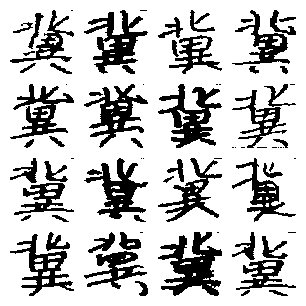 冀冀冀冀
冀冀冀冀
冀冀冀冀
冀冀冀冀